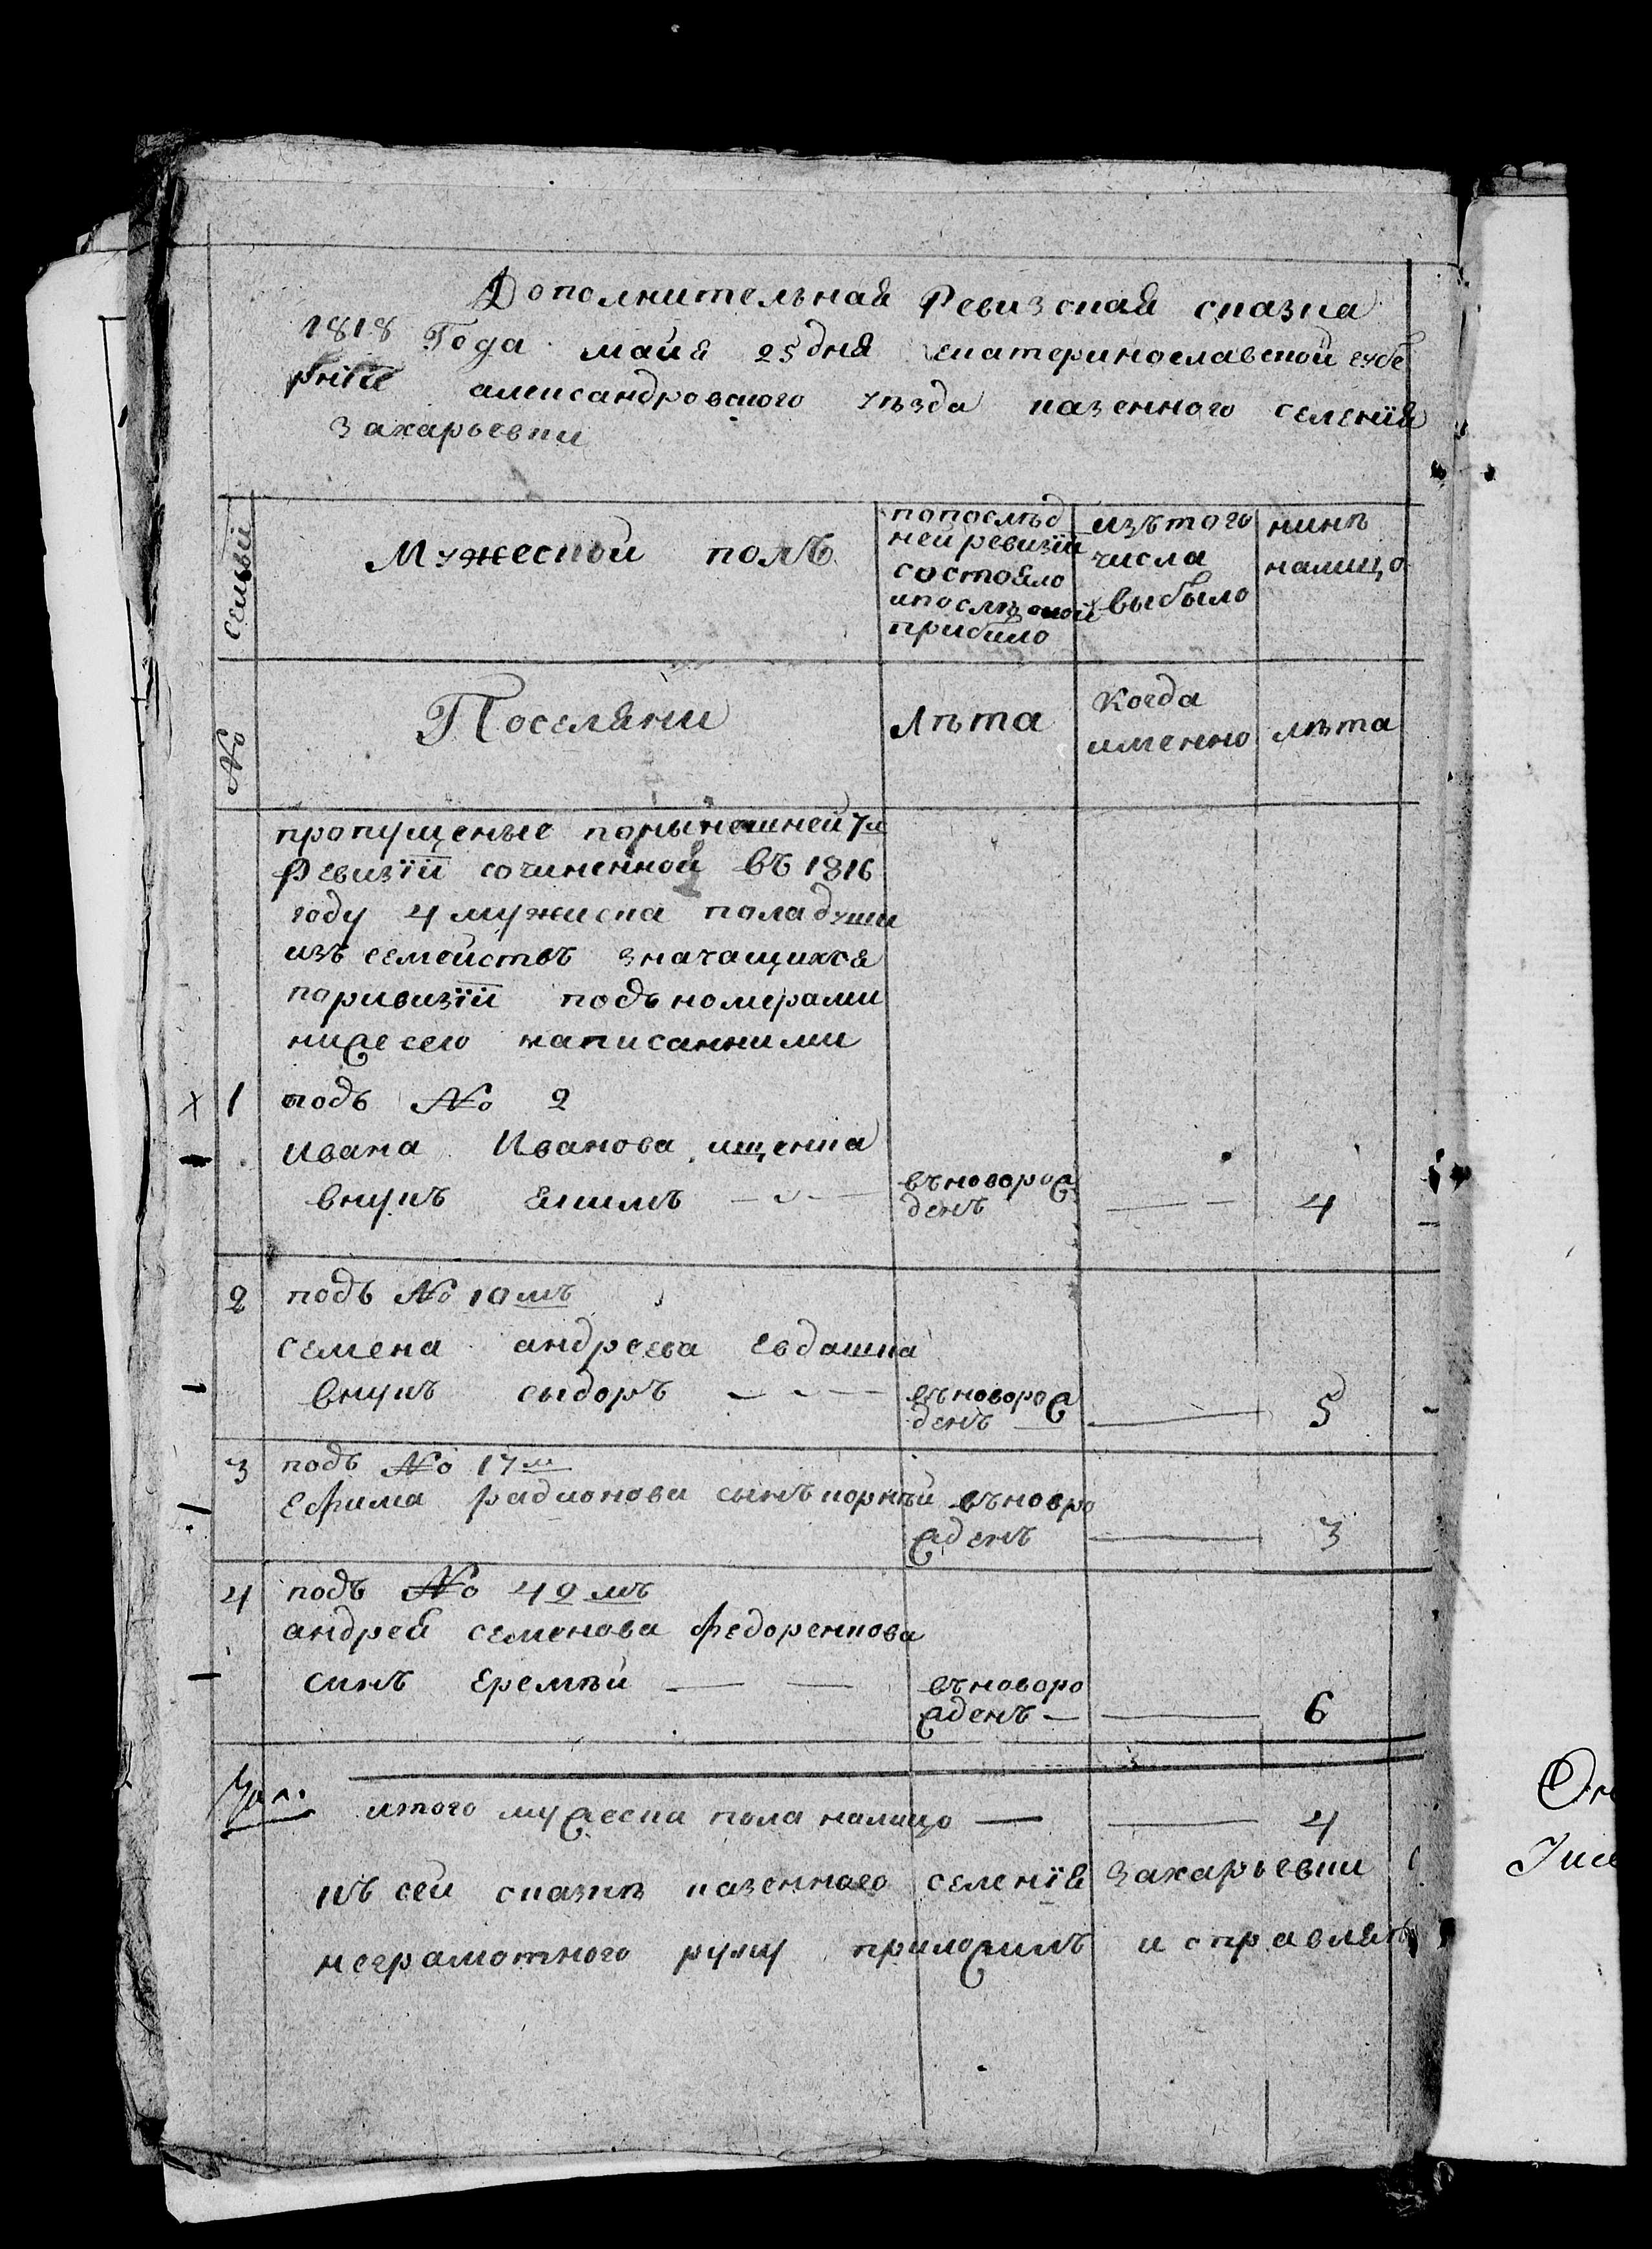 Дополнительная Ревизская сказка
1818 Года майя 25 дня Екатеринославской губе
рнїи александровского уезда казенного селенїя
Захарьевки
№ семьи
Мужеской полъ
попослѣд
ней ревизїи
состояло
ипослѣ оной
прибило
изътого
числа
выбыло
нинѣ
налицо
Поселяни
Лѣта
Когда
именно
лѣта
пропущеные понынешней 7й
Ревизїи сочиненной въ 1816
году 4 мужиска пола души
изъ семействъ значащихся
паривизїи подъ номерами
нижесего написанними
1 подъ № 2
Ивана Иванова ищенка
внукъ Якимъ
въноворож
денъ
4
2 подъ № 10 мъ
семена андреева Евдашка
внукъ сыдоръ
въноворож
денъ
5
3 подъ № 17 м
Ефима радионова сынъ корнѣй въновро
жденъ
3
4 подъ № 42 мъ
андрей семенова Федоренкова
синъ Еремѣй
въноворо
жденъ
6
итого мужеска пола налицо 4
къ сей сказкѣ казенного селенїя Захарьевки
неграмотного руку приложилъ исправлять
Он